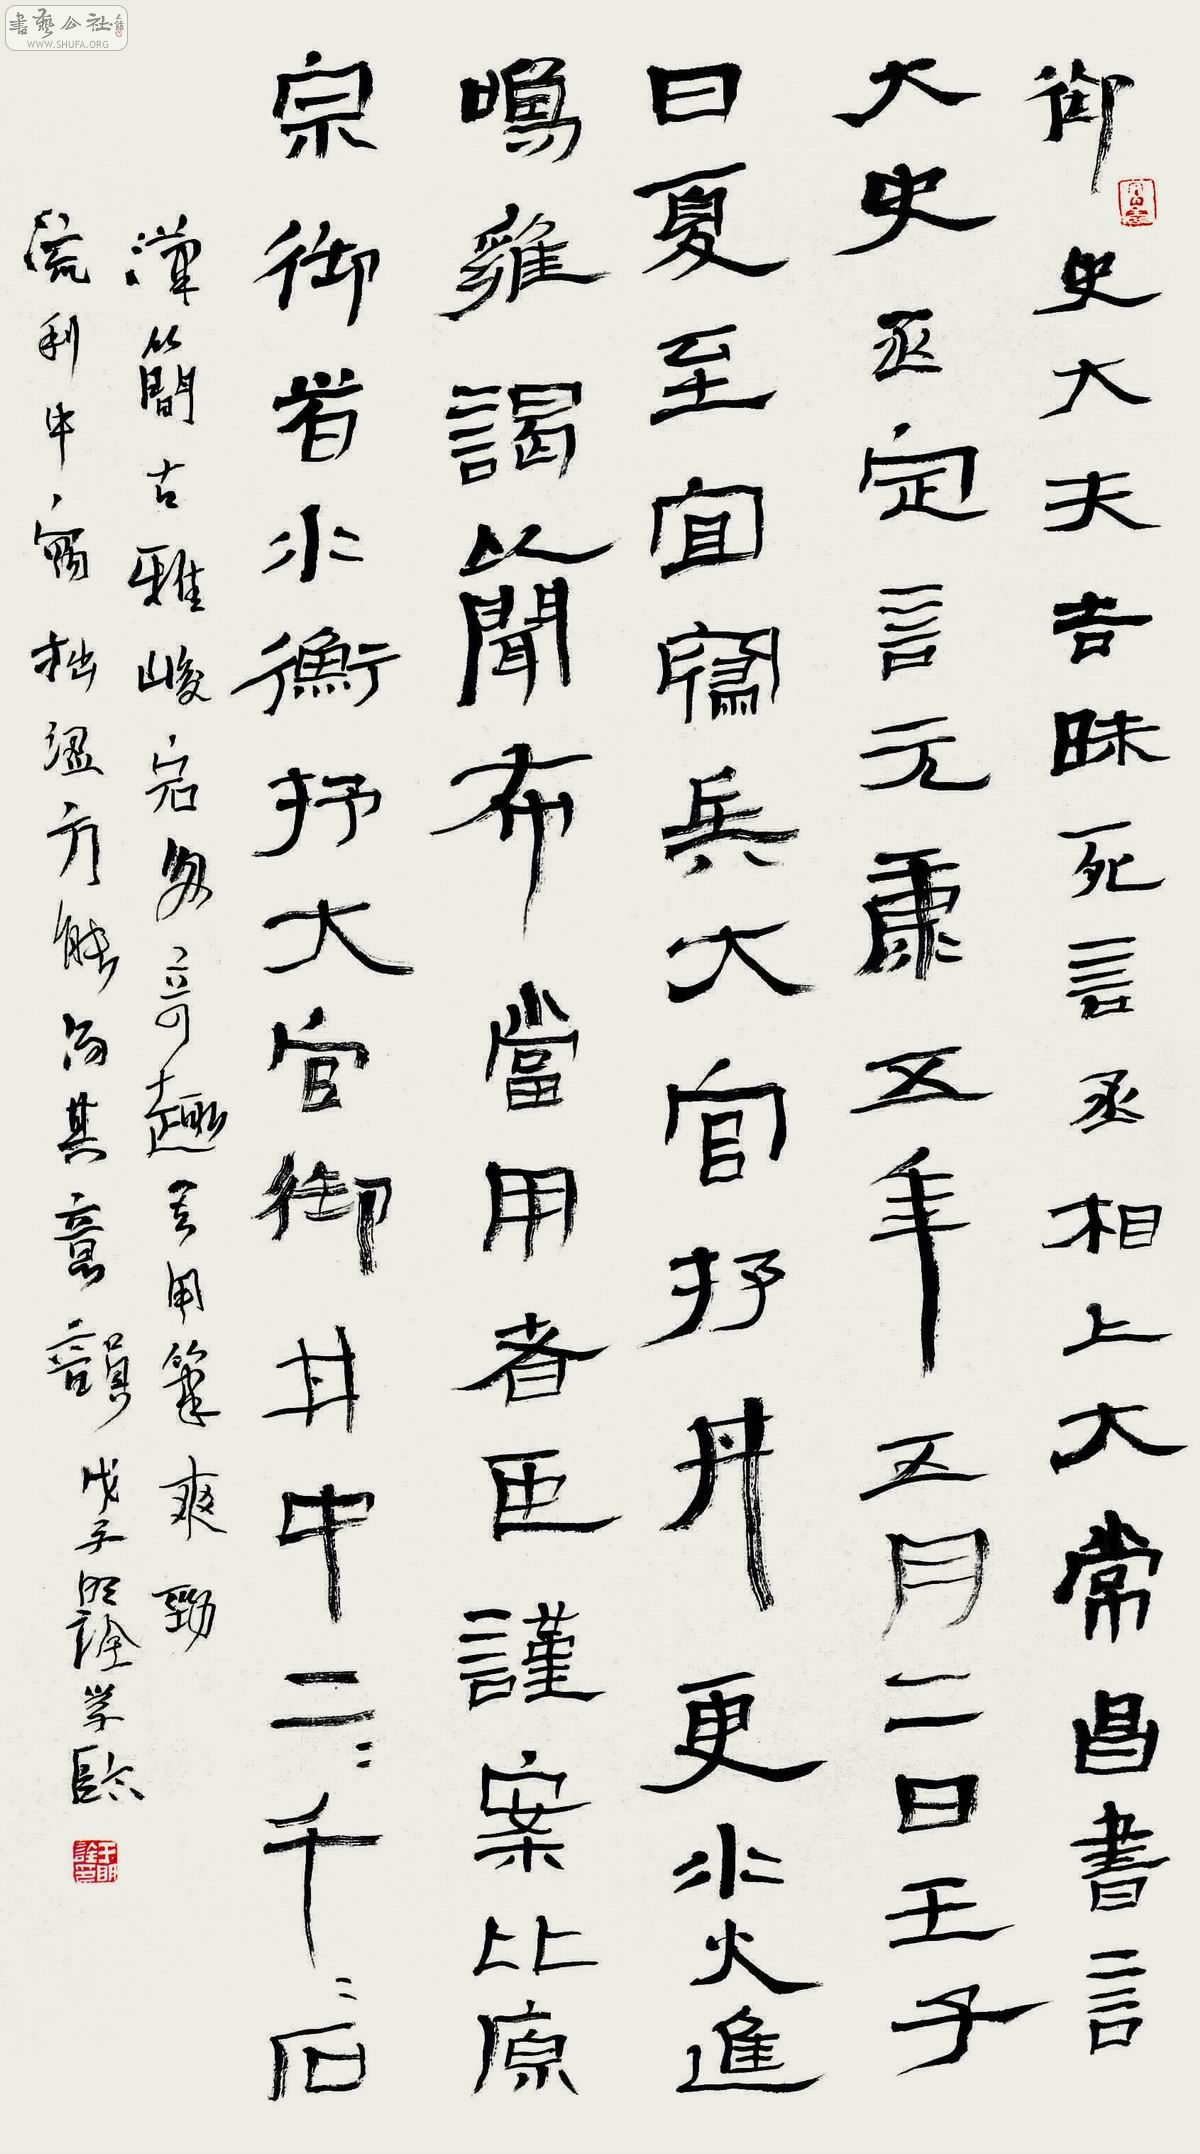 御史大夫吉昧死言丞相上大常昌書言
大史丞定言元康五年五月二日壬子
日夏至宜寢兵大官抒井更水火進
鳴雞謁以聞布當用者臣謹案比原
宗御者水衡抒大官御井中二=千=石
漢簡古雅峻宕多奇趣其用筆爽勁
流利中寓拙澀方能得其意韻 戊子明詮學臨
書藝公社
WWW.SHUFA.ORG
于明詮印